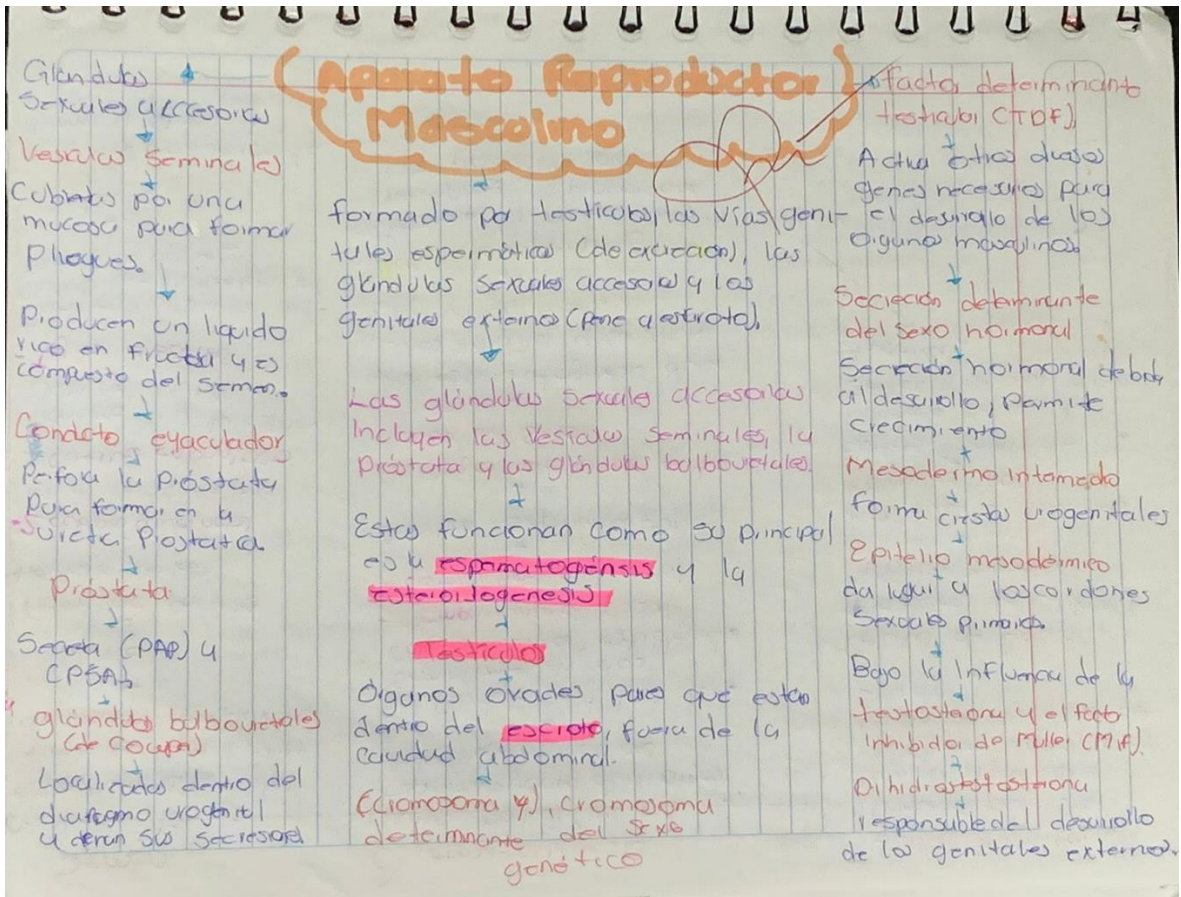 Aparato Reproductor
Mascolino
Glandulas
Sexuales accesorias
Vesiculas seminales
Cubiertas por una
mucosa para formar
Pliegues.
Producen un liquido
rico en fructosa y es
compuesto del semen.
Conducto eyaculador
Perfora la Próstata
para formar en la
Uretra Prostatica
Próstata
Secreta (PAP) y
(PSA)
glándulas bulbouretales
(de Cowper)
Localizadas dentro del
diafragma urogenitl
y deran sus secresoes
formado por testiculos, las vías geni-
tales espermáticas (de excrecion), las
glándulas sexuales accesoias y los
genitales externos (pene y estroto).
Las glándulas sexuales accesoias
Incluyen las vesiculas seminales, la
próstata y las glándulas bulbouretales.
Estas funcionan como su principal
es la espematogénsis y la
esteroidogenesis
Testiculos
Órganos ovades pares que estan
dentro del escroto, fuera de la
cavidad abdominal.
(Cromosoma y), cromosoma
determnante del sexo
genético
factor determinante
testicular (TDF)
Actua otros
genes necesarios para
el desarrollo de los
organos masculinos
Secreción determinante
del sexo hormonal
Secreción hormonal debida
al desarollo, permite
crecimiento
Mesodermo intermedo
forma crestas urogenitales
Epitelio mesodérmico
da lugar a los cordones
sexuales primarios.
Bajo la influencia de la
testosterona y el factor
inhibidor de Muller (Mif).
Dihidrotestosterona
responsable del desarrollo
de los genitales externos.